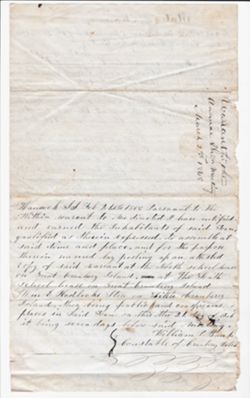 Warrant for
Annual Town Meeting
March 1868
Hancock SS Feb 1868 Pursuant to the
Within warrant to me directed I have notified
and warned the Inhabitants of said Town
qualified as therein expressed to assemble at
said time and place, and for the purpose
therein named by posting up an attested
copy of said warrant at the North school house
on Great Cranberry Island, — at the South
School house on Great Cranberry Island
Wm E Hadlocks Store on Little Cranberry
Island they being public and conspicuous
places in said Town on the 24 day of
it being seven days before said meeting
William P
Constable of Cranberry Isles